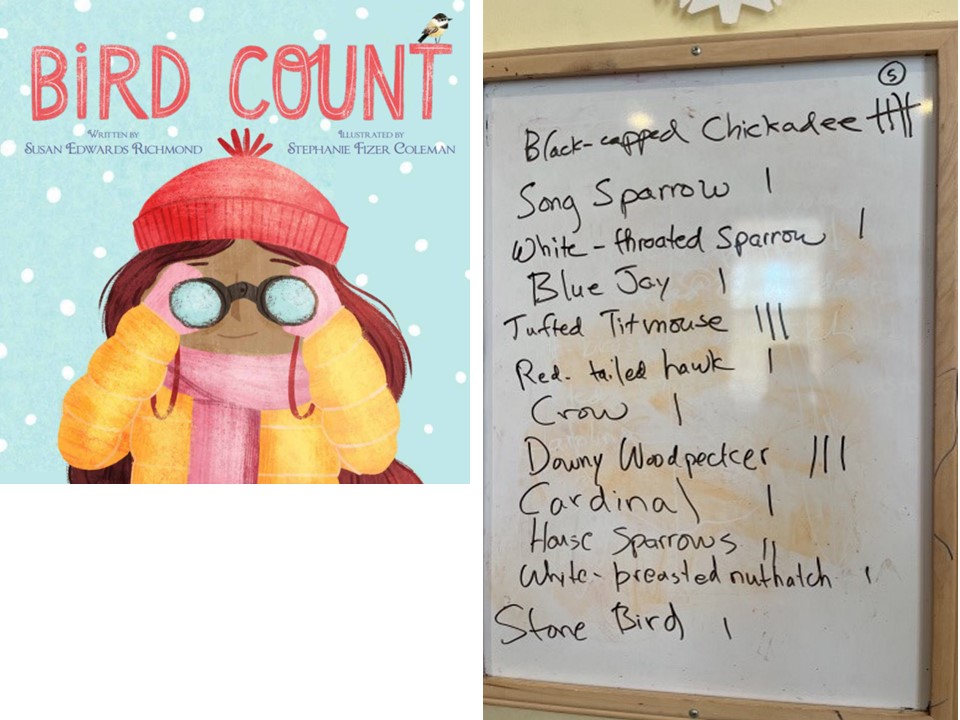 BiRD COUNT
WRITTEN BY
SUSAN EDWARDS RICHMOND
ILLUSTRATED BY
STEPHANIE FIZER COLEMAN
5
Black-capped Chickadee 卌
Song Sparrow |
White-throated Sparrow |
Blue Jay |
Tufted Titmouse |||
Red-tailed hawk |
Crow |
Downy Woodpecker |||
Cardinal |
House Sparrows ||
White-breasted nuthatch |
Stone Bird |